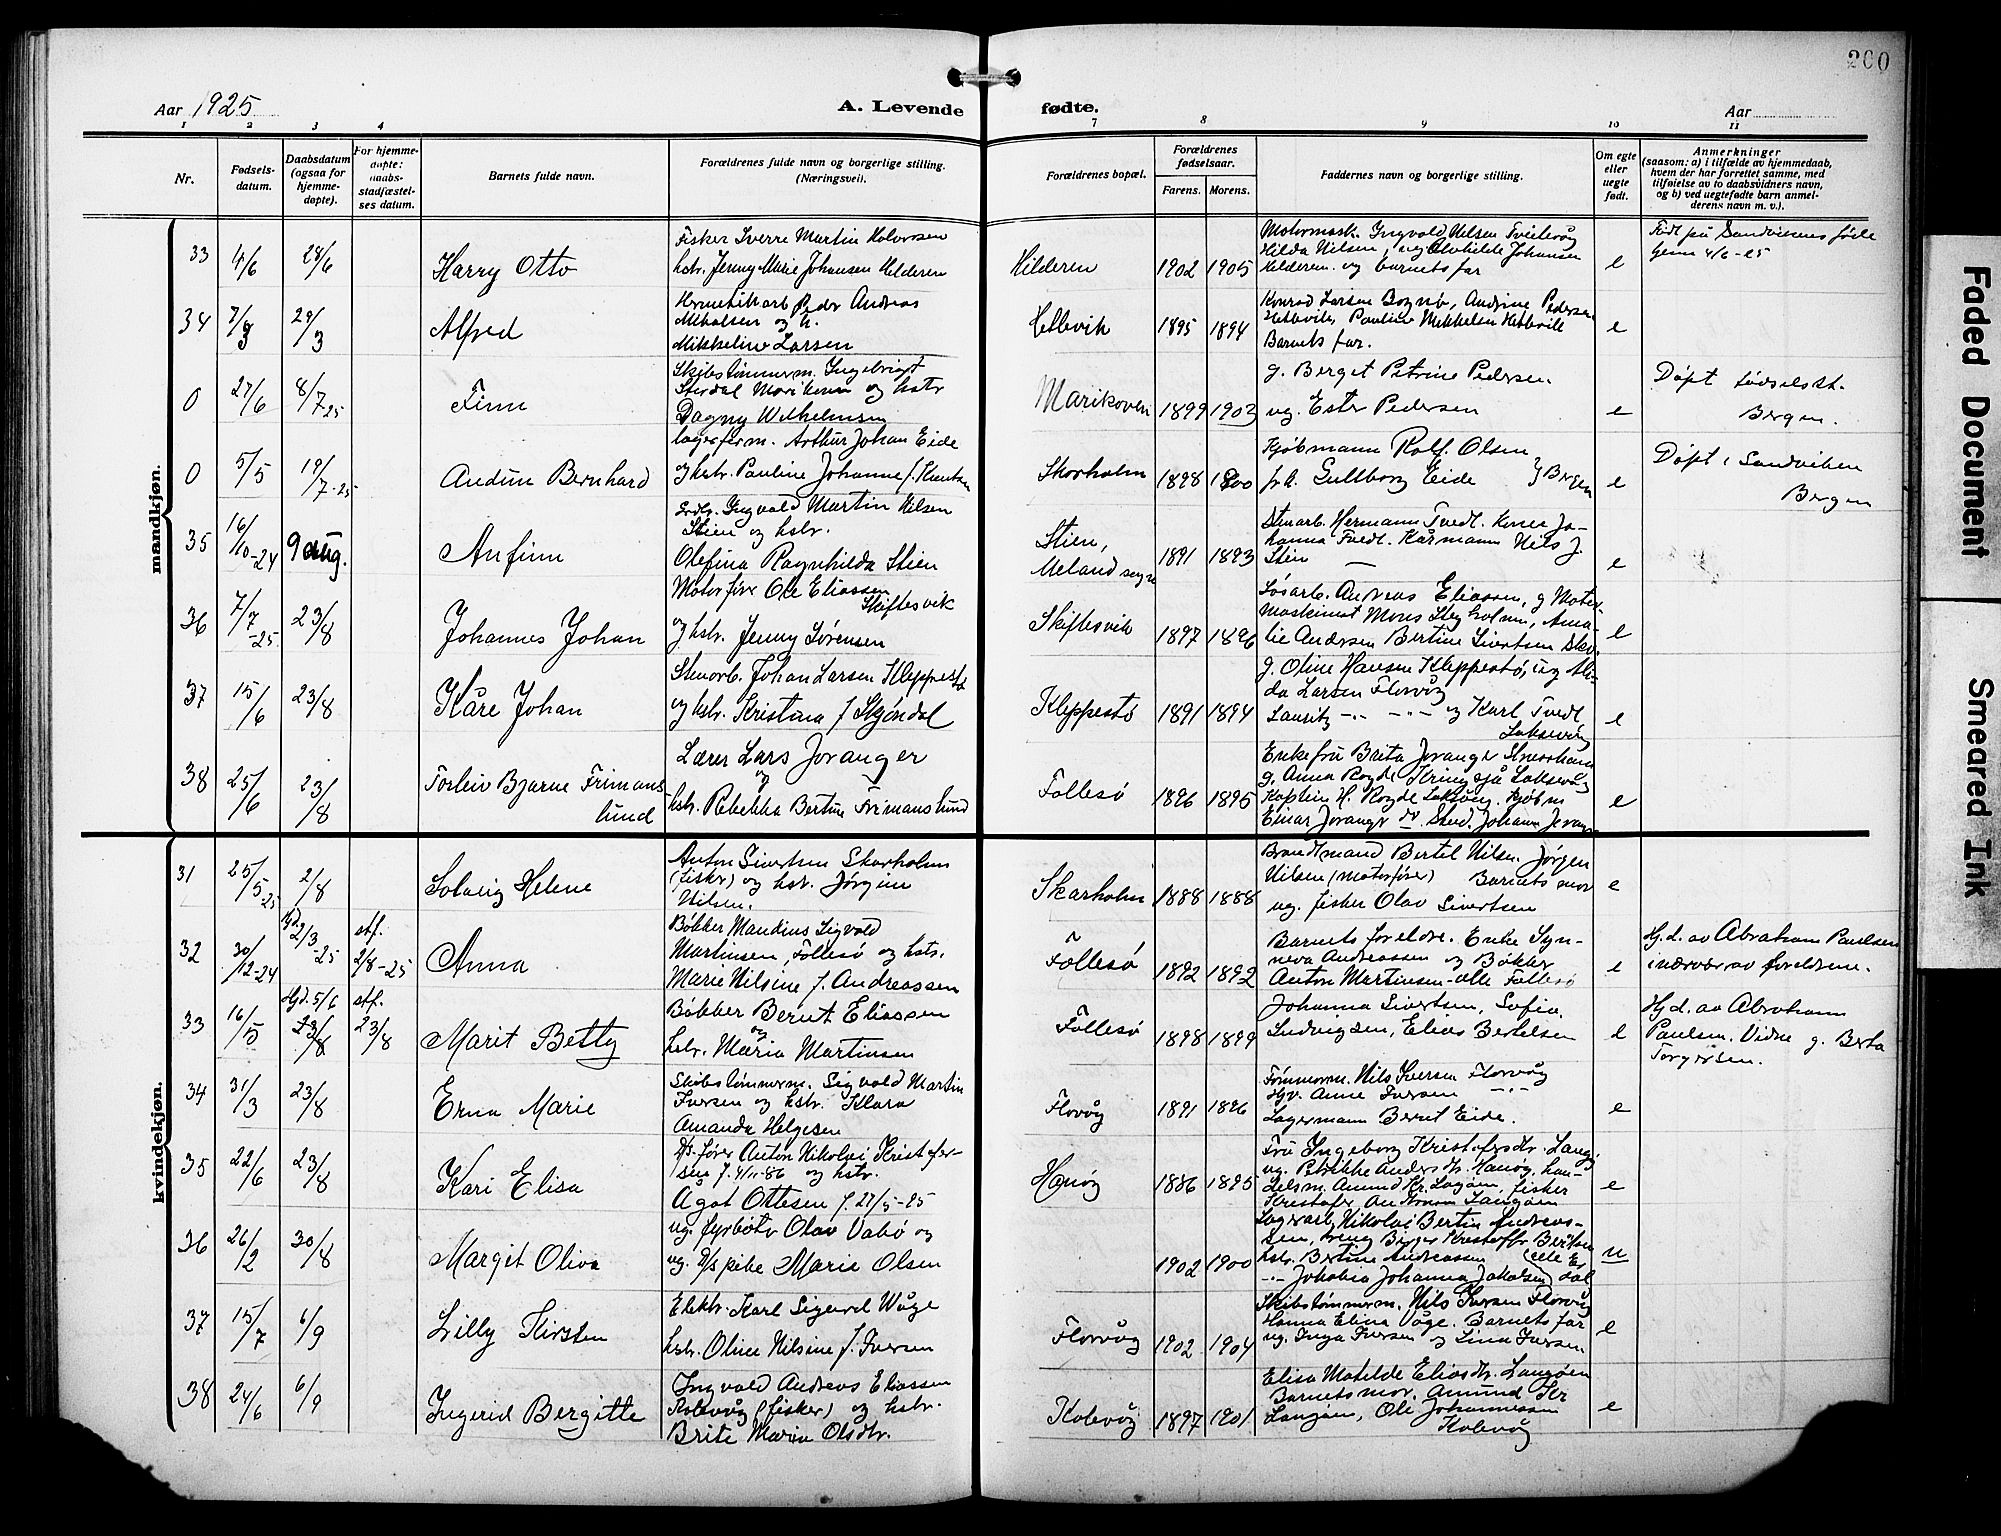 200
Aar 1925
A. Levende
fødte.
Aar
1 2 3 4
7 8 9 10 11
Nr.
Fødsels-
datum.
Daabsdatum
(ogsaa for
hjemme-
døpte).
For hjemme-
døpte:
daabs-
stadfæstel-
ses datum.
Barnets fulde navn.
Forældrenes fulde navn og borgerlige stilling.
(Næringsvei).
Forældrenes bopæl.
Forældrenes
fødselsaar.
Farens. Morens.
Faddernes navn og borgerlige stilling.
Om egte
eller
uegte
født.
Anmerkninger
(saasom: a) i tilfælde av hjemmedaab,
hvem der har forrettet samme, med
tilføielse av to daabsvidners navn,
og b) ved uegtefødte barn anmel-
derens navn m. v.).
mandkjøn.
33 4/6 28/6 Harry Otto
Fisker Sverre Martin
hstr. Jenny Marie Johansen Hilderen
Hilderen 1902 1905
Motormask. Ingvald Nilsen
Hilda Nilsen, ug Johansen
Hilderen og barnets far
e
Født på Sandvikens føde
hjem 4/6-25
34 29/3 Alfred
Hermetikarb. Peder Andreas
og h.
Mikkeline Larsen
Hetlevik 1895 1894
Konrad Larsen Andrine Pedersen
Hetlevik, Pauline Mikkelsen Hetlevik
Barnets far.
e
0 27/6 8/7-25 Finn
Skibstømmerm. Ingebrigt
og hstr
Dagny Wilhelmsen
Marikoven 1899 1903
g. Berget Petrine Pedersen.
ug. Ester Pedersen
e
Døpt Fødselsst.
Bergen.
0 5/5 19/7-25 Audun Bernhard
Arthur Johan Eide
og hstr. Pauline Johanne f. Knutsen
Skorholm 1898 1900
Kjøbmann Rolf Olsen
frk. Gullborg Eide } Bergen
e
Døpt i Sandviken
Bergen
35 16/10-24 9 aug. Anfinn
Ingvald Martin Nilsen
Stien og hstr.
Olefina Ragnhilda Stien
Stien,
Meland sogn
1891 1893
Stenarb. Hermann Tvedt. Kone Jo-
hanna Tvedt. Nils J.
Stien —
e
36 7/7-25 23/8 Johannes Johan
Motorfører Ole Eliassen
Skiftesvik
og hstr. Jenny Sørensen
Skiftesvik 1897 1896
Løsarb. Andreas Eliassen, g Motor-
maskinist Mons Ama-
lie Andersen Bertine Sivertsen
e
37 15/6 23/8 Kåre Johan
Stenarb. Johan Larsen Kleppestø
og hstr. Kristina f Skjøndal
Kleppestø 1891 1894
g. Oline Hansen Kleppestø, ug
da Larsen Florvåg
Lauritz -"- -"- og Karl Tvedt
Laksevåg
e
38 25/6 23/8 Torleiv Bjarne Frimans
lund
Lærer Lars Joranger
og
hstr. Rebekka Bertine Frimanslund
Follesø 1896 1895
Enkefru Brita Joranger
g. Anna Røyde Laksevåg
Kaptein H. Røyde Laksevåg. Kjøbm
Einar Joranger Stud. Johann Joranger
e
kvindekjøn.
31 25/5-25 2/8 Solveig Helene
Anton Sivertsen Skarholm
(fisker) og hstr. Jørgine
Nilsen.
Skarholm 1888 1888
Brandmand Bertel Nilsen. Jørgen
Nilsen (motorfører) Barnets mor
ug. fisker Olav Sivertsen
e
32 30/12-24 Hjd. 2/3-25 stf. 2/8-25 Anna
Bøkker Mandius Sigvald
Martinsen, Follesø og hstr.
Marie Nilsine f. Andreassen
Follesø 1892 1892
Barnets foreldre. Enke Syn-
neva Andreassen og Bøkker
Anton Martinsen - alle Follesø
e
Hj.d. av Abraham Paulsen
i nærvær av foreldrene.
33 16/5 Hjd. 5/6 23/8 stf. 23/8 Marit Betty
Bøkker Bernt Eliassen
og
hstr. Maria Martinsen
Follesø 1898 1899
Johanna Sivertsen, Sofia
Ludvigsen, Elias Bertelsen
e
Hj.d. av Abraham
Paulsen. Vidne g. Berta
Torgersen.
34 31/3 23/8 Erna Marie
Skibstømmerm. Sigvald Martin
Iversen og hstr. Klara
Amanda Helgesen
Florvåg 1891 1896
Tømmerm. Nils Iversen Florvåg
Anne Iversen -"-
Lagermann Bernt Eide.
e
35 22/6 23/8 Kari Elisa
D/s. fører Anton Nikolai Kristofer-
sen f. 4/11-86 og hstr.
Agot Ottesen f. 27/5-95
Hanøy 1886 1895
Fru Ingeborg Kristofersdtr. Langø,
ug. Petrikke Andersdtr. Hanøy, han-
delsm. Amund Kr. Langøen, fisker
Kristofer Langøen
e
36 26/2 30/8 Margit Oliva
ug. fyrbøter Olav Vabø og
ug. D/s pike Marie Olsen
1902 1900
Lagerarb. Nikolai Bertin Andreas-
sen, Birger Kristoffer Bertinsen
hstr. Bertine Andreassen (alle Ei-
-"- Jakobia Johanna Jakobsen) dal
u
37 15/7 6/9 Lilly Kirsten
Elektr. Karl Sigurd Våge
hstr. Oline Nilsine f. Iversen
Florvåg 1902 1904
Skibstømmerm. Nils Iversen Florvåg
Hanna Elina Våge. Barnets far
ug. Inga Iversen og Lina Iversen
e
38 24/6 6/9 Ingerid Bergitte
Ingvald Andreas Eliassen
Kolevåg (fisker) og hstr.
Brite Maria Olsdtr.
Kolevåg 1897 1901
Elisa Matilde Eliasdtr. Langøen
Barnets mor. Amund Kr
Langøen, Ole Johannessen
Kolevåg
e
Faded Document
Smeared Ink